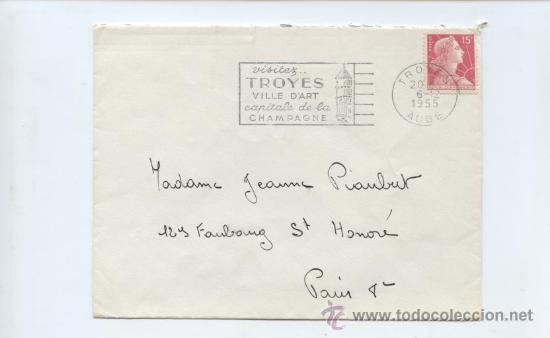 visitez..
TROYES
VILLE D'ART
capitale de la
CHAMPAGNE
15F
TROYES
6-12
1955
AUBE
Madame Jeanne Piaubert
123 Faubourg St Honoré
Paris 8e
www.todocoleccion.net